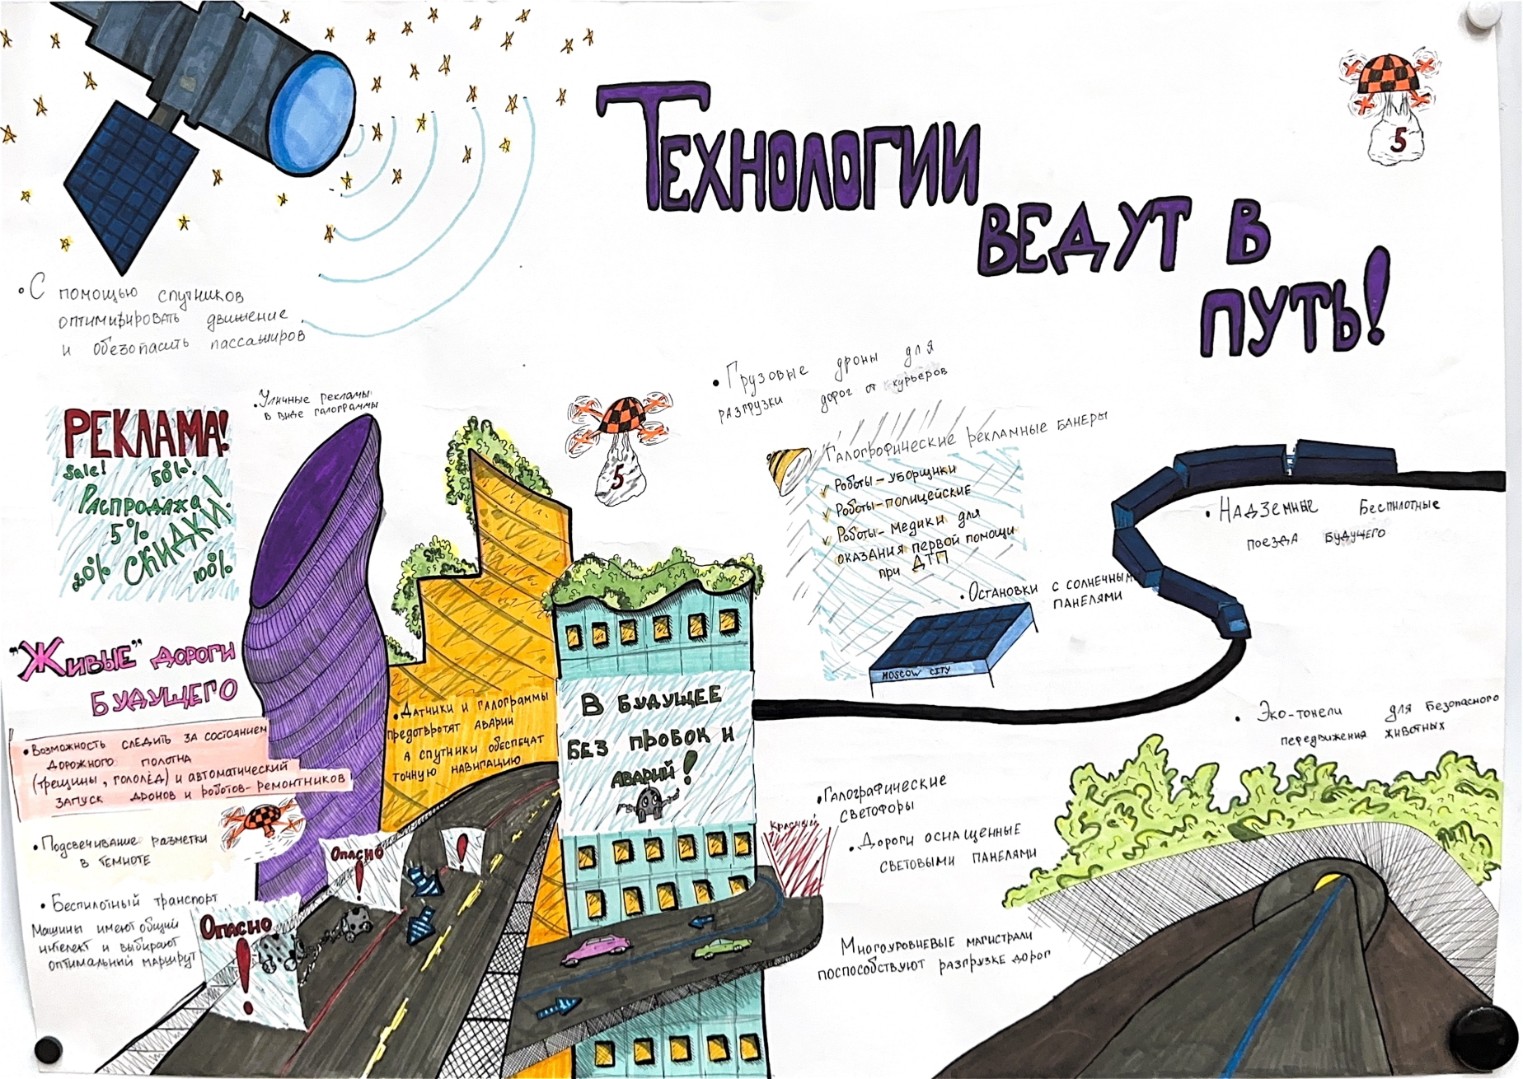 Технологии
ведут в
путь!
5
• С помощью спутников
оптимизировать движение
и обезопасить пассажиров
• Уличные рекламы
в виде галограммы
РЕКЛАМА!
Sale! 50%!
Распродажа!
5%
СКИДКИ!
20% 100%
• Грузовые дроны для
разгрузки дорог от курьеров
5
Галографические рекламные банеры
Роботы-уборщики
Роботы-полицейские
Роботы-медики для
оказания первой помощи
при ДТП
• Остановки с солнечным
панелями
MOSCOW CITY
• Надземные беспилотные
поезда будущего
"Живые" дороги
будущего
• Возможность следить за состоянием
дорожного полотна
(трещины, гололёд) и автоматический
запуск дронов и роботов-ремонтников
• Подсвечивание разметки
в темноте
• Беспилотный транспорт
Машины имеют общий
интелект и выбирают
оптимальный маршрут
Опасно
!
Опасно
!
!
• Датчики и галограммы
предотвротят аварии
а спутники обеспечат
точную навигацию
В будущее
без пробок и
аварий!
Красный
• Галаграфические
светофоры
• Дороги оснащенные
световыми панелями
Многоуровневые магистрали
поспособствуют разгрузке дорог
• Эко-тонели для безопасного
передвижения животных